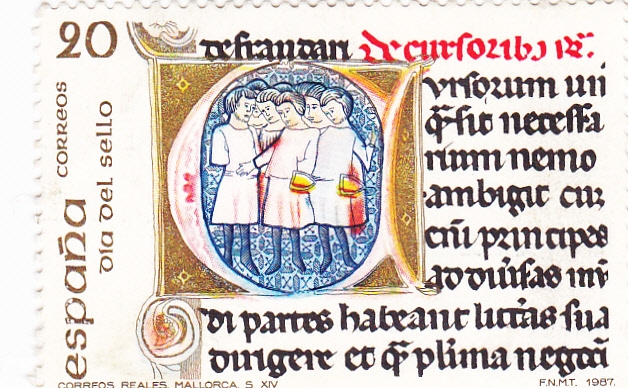 20
CORREOS
españa
dia del sello
defraudari de cursorib9
Cursorum
necessa
rium nemo
ambigit cur
principes
ad diversas
di partes habeant litteras sua
dirigere et plurima negoti
CORREOS REALES. MALLORCA. S. XIV
F.N.M.T. 1987.